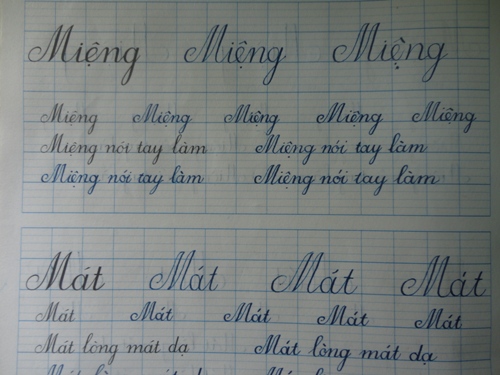 Miệng Miệng Miệng
Miệng Miệng Miệng Miệng Miệng
Miệng nói tay làm Miệng nói tay làm
Miệng nói tay làm Miệng nói tay làm
Mát Mát Mát Mát
Mát Mát Mát Mát Mát
Mát lòng mát dạ Mát lòng mát dạ